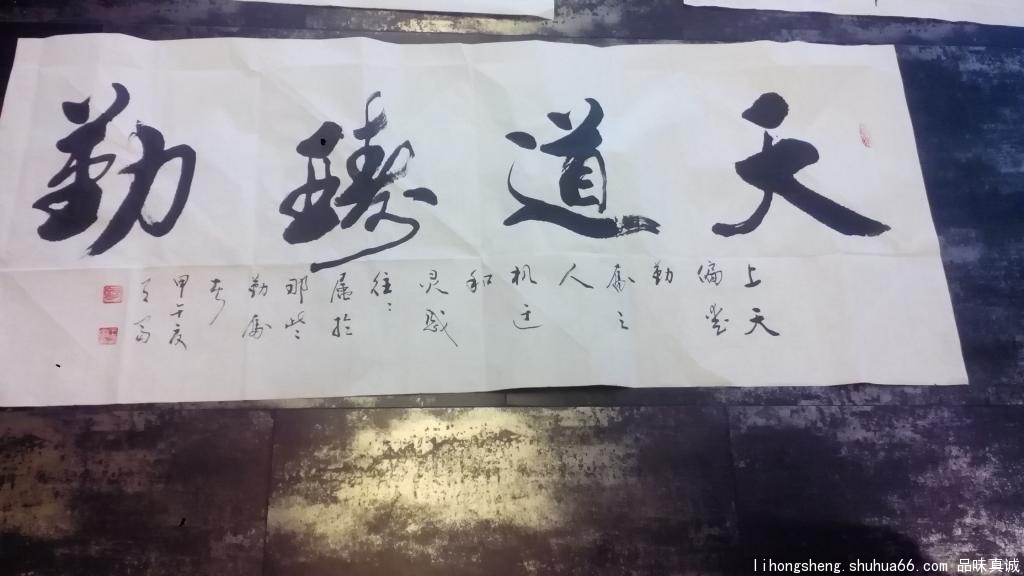 天道酬勤
上天
偏爱
勤
奋之
人
机迂
和
灵感
往々
属於
那些
勤奋
者
甲午夏
lihongsheng.shuhua66.com 品味真诚